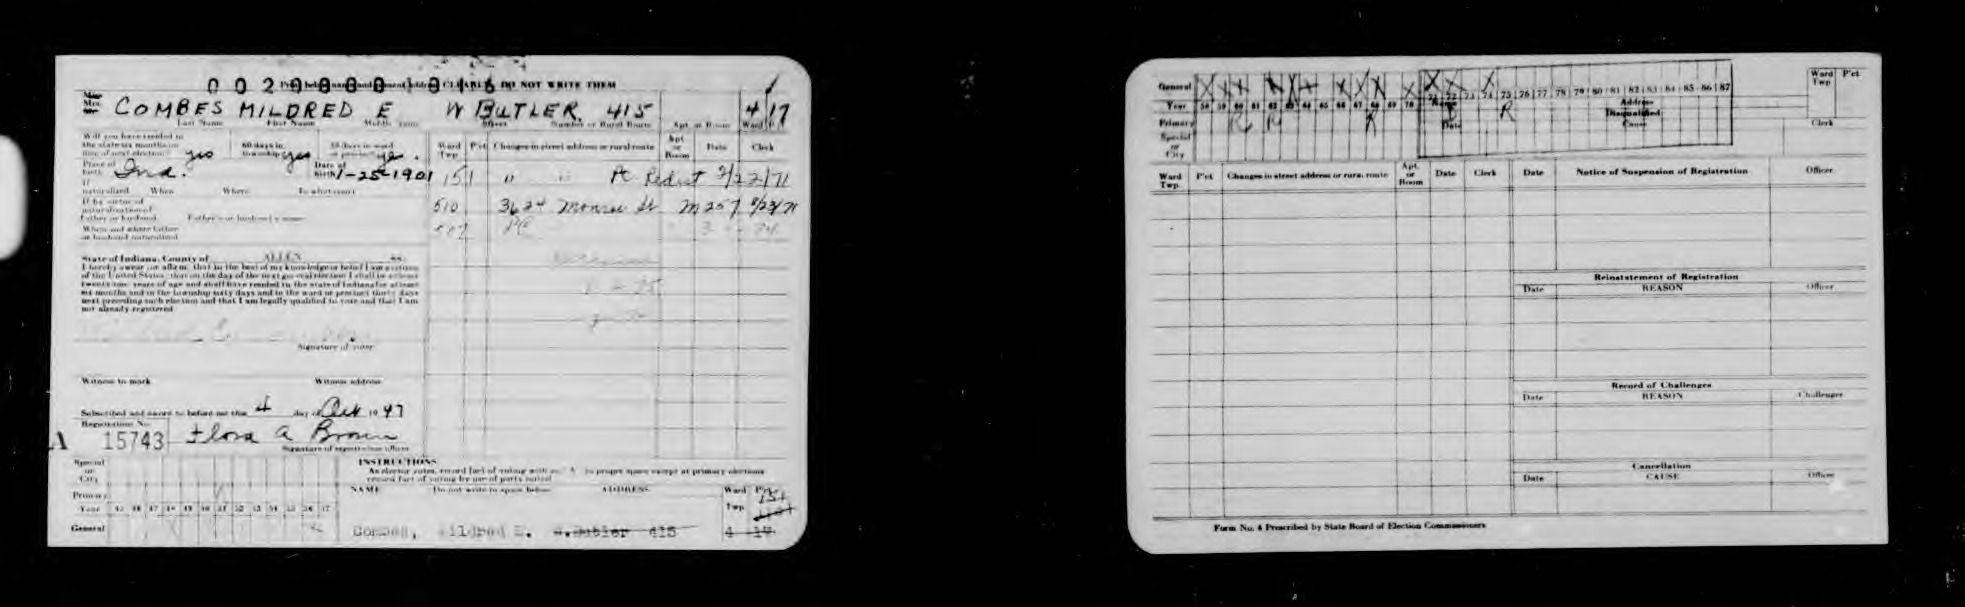 DO NOT WRITE THEM
COMBES MILDRED E W BUTLER. 415 4 17
Last Name First Name Middle name Street Number or Rural Route Apt. or Room Ward
Will you have resided in
the state six months on
time of next election? yes
60 days in
township yes
Ward
Twp
P'ct
Changes in street address or rural route
Apt.
or
Room
Date
Clerk
Place of
birth Ind.
Date of
birth 1-25-1901
151 " " Pc Redist 2/22/71
If
naturalized When Where To what court
If by virtue of
naturalization of
father or husband Father's or husband's name
510 3624 Monroe St M257
When and where father
or husband naturalized
State of Indiana, County of ALLEN ss:
I hereby swear (or affirm) that to the best of my knowledge or belief I am a citizen
of the United States; that on the day of the next general election I shall be at least
twenty-one years of age and shall have resided in the state of Indiana for at least
six months and in the township sixty days and in the ward or precinct thirty days
next preceding such election and that I am legally qualified to vote and that I am
not already registered.
Signature of voter
Witness to mark Witness address
Subscribed and sworn to before me this 4 day of Oct 1947
Registration No.
A 15743 Flora A Brown
Signature of registration officer
INSTRUCTIONS
As elector votes, record fact of voting with an X in proper space except at primary elections
record fact of voting by use of party initial
Special
or
City
Primary
Year 45 46 47 48 49 50 51 52 53 54 55 56 57
General
NAME Do not write in space below ADDRESS
Ward
Twp
P'ct
151
Combes, Mildred E. W.Butler 415 4 17
General
Year 58 59 60 61 62 63 64 65 66 67 68 69 70 71 72 73 74 75 76 77 78 79 80 81 82 83 84 85 86 87
Primary R R R R
Special
or
City
Name
Date
Address
Disqualified
Cause
Ward
Twp
P'ct
Clerk
Ward
Twp.
P'ct
Changes in street address or rural route
Apt.
or
Room
Date
Clerk
Date Notice of Suspension of Registration Officer
Reinstatement of Registration
Date REASON Officer
Record of Challenges
Date REASON Challenger
Cancellation
Date CAUSE Officer
Form No. 4 Prescribed by State Board of Election Commissioners